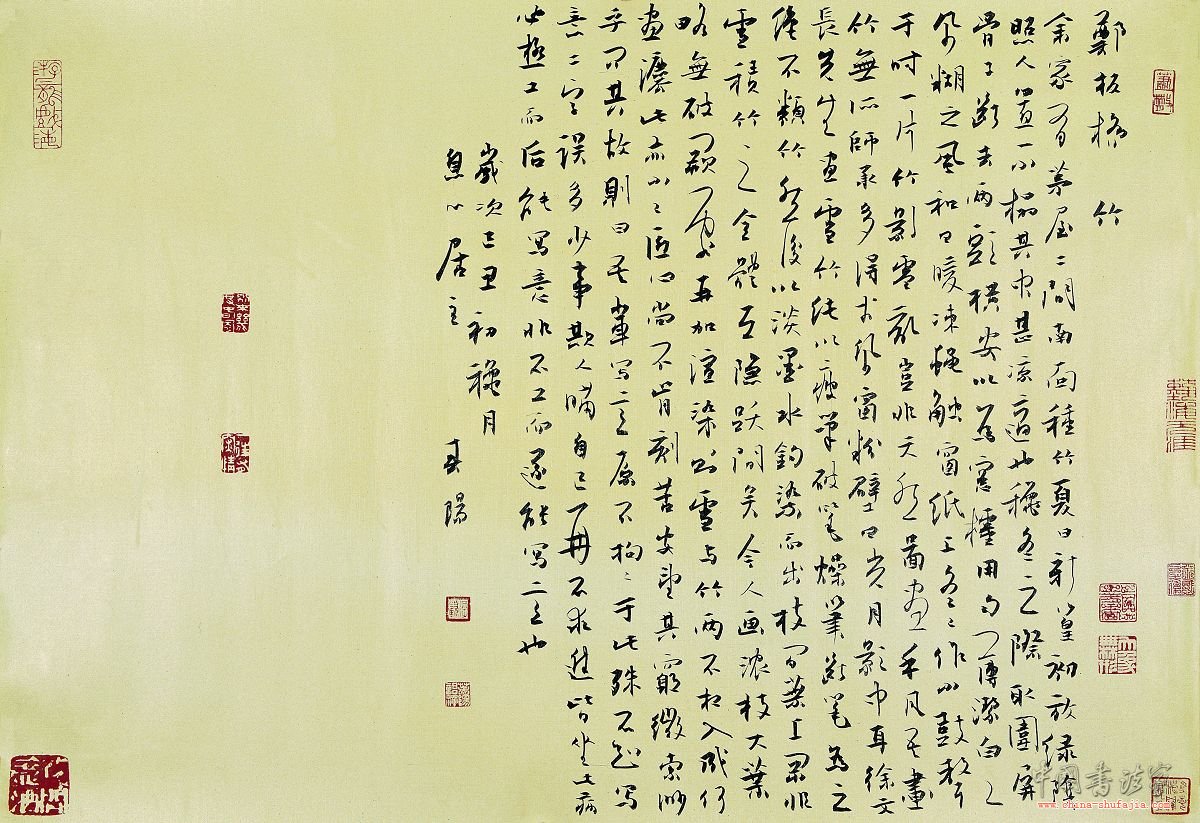 鄭板橋 竹
余家有茅屋二間南面種竹夏日新篁初放緑陰
照人置一小榻其中甚凉適也穐冬之際取圍屏
骨子斷去兩頭横安以為窗櫺用勻薄潔白之
紙糊之風和日暖凍蠅觸窗紙上冬冬作小鼓聲
于時一片竹影零亂豈非天然圖畫乎凡吾畫
竹無所師承多得于紙窗粉壁日光月影中耳徐文
長先生畫雪竹純以瘦筆破筆燥筆斷筆為之
絕不類竹然後以淡墨水鈎染而出枝間葉上罔非
雪積竹之全體在隱躍間矣今人画濃枝大葉
略無破闕處再加渲染則雪与竹兩不相入成何
畫灋此亦小小匠心尚不肯刻苦安望其窮微索渺
乎问其故則曰吾輩寫意原不拘拘于此殊不知寫
意二字误多少事欺人瞞自己再不求進皆坐此病
必極工而后能寫意非不工而遂能寫意也
歲次己丑初穐月
息心居主 春陽
中国書法家
www.china-shufajia.com